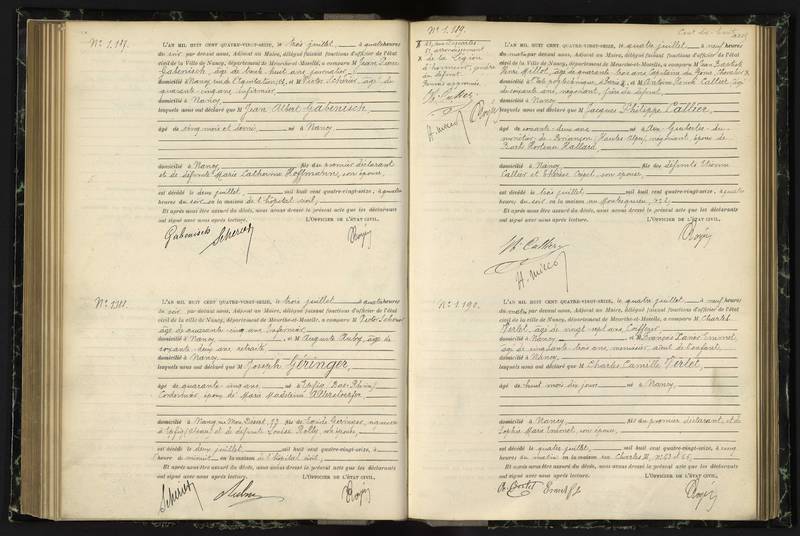 N° 1.187.
L'AN MIL HUIT CENT QUATRE-VINGT-SEIZE, le trois juillet, à quatre heures
du soir par devant nous, Adjoint au Maire, délégué faisant fonctions d'officier de l'état
civil de la ville de Nancy, département de Meurthe-et-Moselle, a comparu M Jean Pierre
Gabenisch, âgé de trente huit ans, journalier
domicilié à Nancy, rue de l'Equitation, et M Victor Scherer, âgé de
quarante-cinq ans, infirmier
domicilié à Nancy
lesquels nous ont déclaré que M Jean Albert Gabenisch,
âgé de cinq mois et demi, né à Nancy
domicilié à Nancy fils du premier déclarant
et de défunte Marie Catherine Hoffmann, son épouse,
est décédé le deux juillet, mil huit cent quatre-vingt-seize, à quatre
heures du soir en la maison de l'hôpital civil,
Et après nous être assuré du décès, nous avons dressé le présent acte que les déclarants
ont signé avec nous après lecture. L'OFFICIER DE L'ÉTAT CIVIL,
Gabenisch Scherer
N° 1.188.
L'AN MIL HUIT CENT QUATRE-VINGT-SEIZE, le trois juillet à quatre heures
du soir par devant nous, Adjoint au Maire, délégué faisant fonctions d'officier de l'état
civil de la ville de Nancy, département de Meurthe-et-Moselle, a comparu M Victor Scherer
âgé de quarante-cinq ans, infirmier
domicilié à Nancy et M Auguste Aubry, âgé de
soixante-deux ans, retraité
domicilié à Nancy
lesquels nous ont déclaré que M Joseph Géringer,
âgé de quarante cinq ans né à Epfig, Bas-Rhin,
Cordonnier, époux de Marie Madeleine
domicilié à Nancy, rue Mon Désert, 79 fils de Géringer,
à Epfig (Alsace) et de défunte Louise Rolly, son épouse,
est décédé le deux juillet, mil huit cent quatre-vingt-seize, à
heures à minuit en la maison de l'hôpital civil,
Et après nous être assuré du décès, nous avons dressé le présent acte que les déclarants
ont signé avec nous après lecture. L'OFFICIER DE L'ÉTAT CIVIL,
Scherer Aubry
N° 1.189.
rue Descartes
arrondissement
de la Légion
d'honneur, gendre
du défunt
W. Callier
H. Millot
L'AN MIL HUIT CENT QUATRE-VINGT-SEIZE, le quatre juillet, à neuf heures
du matin par devant nous, Adjoint au Maire, délégué faisant fonctions d'officier de l'état
civil de la ville de Nancy, département de Meurthe-et-Moselle, a comparu M Jean Baptiste
Millot, âgé de quarante trois ans, Capitaine du Génie, Chevalier
domicilié à l'Ecole polytechnique à Paris et M Antoine Callier, âgé
de soixante ans, négociant, frère du défunt,
domicilié à Nancy
lesquels nous ont déclaré que M Jacques Philippe Callier,
âgé de soixante-deux ans né à
de Briançon (Hautes Alpes), négociant, époux de
domicilié à Nancy fils des défunts Etienne
Callier et Thérèse son épouse,
est décédé le trois juillet mil huit cent quatre-vingt-seize, à quatre
heures du soir en la maison rue Montesquieu,
Et après nous être assuré du décès, nous avons dressé le présent acte que les déclarants
ont signé avec nous après lecture. L'OFFICIER DE L'ÉTAT CIVIL,
W. Callier
H. Millot
N° 1.190.
L'AN MIL HUIT CENT QUATRE-VINGT-SEIZE, le quatre juillet, à neuf heures
du matin par devant nous, Adjoint au Maire, délégué faisant fonctions d'officier de l'état
civil de la ville de Nancy, département de Meurthe-et-Moselle, a comparu M Charles
âgé de vingt sept ans, Coiffeur
domicilié à Nancy et M François
âgé de cinquante trois ans, menuisier, aïeul de l'enfant,
domicilié à Nancy
lesquels nous ont déclaré que M Charles Camille
âgé de huit mois dix jours né à Nancy,
domicilié à Nancy, fils du premier déclarant, et de
Sophie Marie son épouse,
est décédé le quatre juillet, mil huit cent quatre-vingt-seize, à
heures du matin en la maison rue Charles III,
Et après nous être assuré du décès, nous avons dressé le présent acte que les déclarants
ont signé avec nous après lecture. L'OFFICIER DE L'ÉTAT CIVIL,